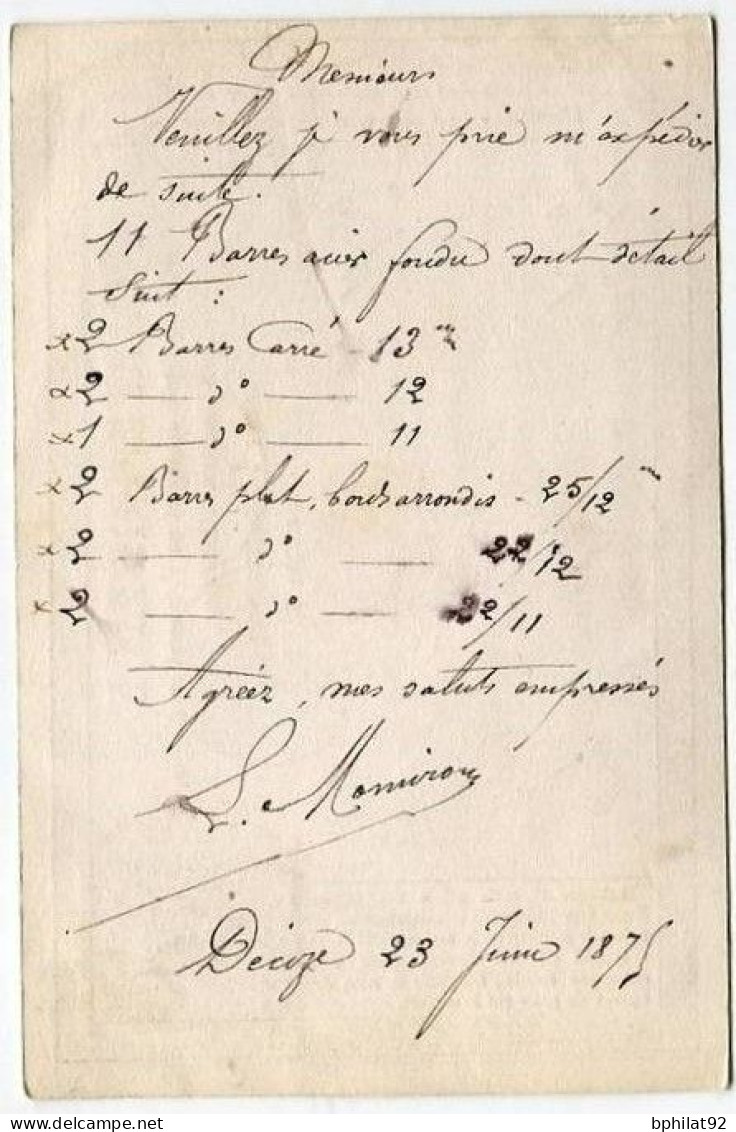 Messieurs
Veuillez je vous prie m'expédier
de suite.
11 Barres acier fondu dont détail
suit :
x 2 Barres Carré - 13 m/m
x 2 — d° — 12
x 1 — d° — 11
x 2 Barres plat, bouts arrondis - 25/12 m
x 2 — d° — 22/12
x 2 — d° — 22/11
Agréez, mes saluts empressés
L.
Décize 23 Juin 1875
bphilat92